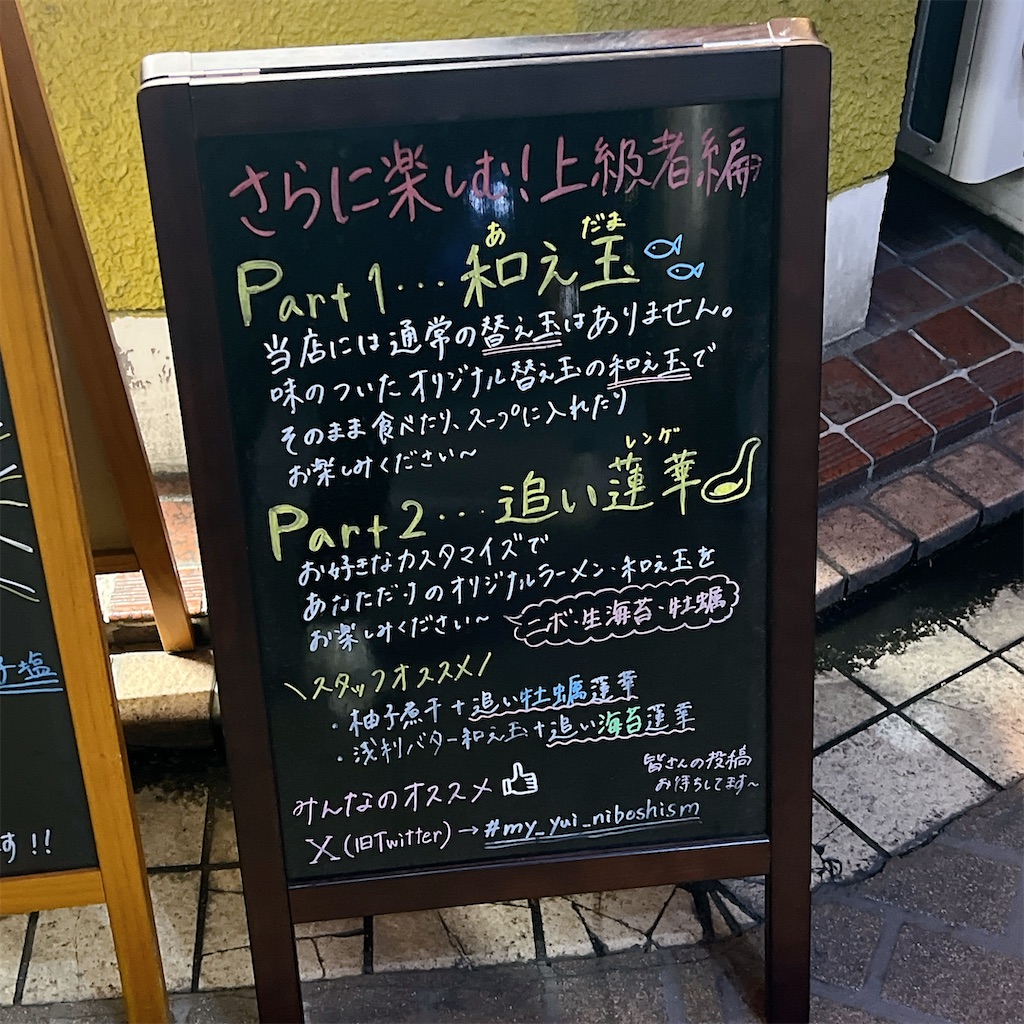 さらに楽しむ!上級者編
あ だま
Part 1・・・和え玉
当店には通常の替え玉はありません。
味のついたオリジナル替え玉の和え玉で
そのまま食べたり、スープに入れたり
お楽しみください〜
レンゲ
Part 2・・・追い蓮華
お好きなカスタマイズで
あなただけのオリジナルラーメン・和え玉を
お楽しみください〜
ニボ・生海苔・牡蠣
\スタッフオススメ/
・柚子煮干+追い牡蠣蓮華
・浅利バター和え玉+追い海苔蓮華
みんなのオススメ
皆さんの投稿
お待ちしてます〜
X(旧Twitter)→#my_yui_niboshism
子塩
す!!